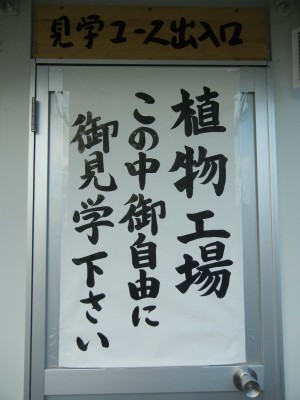 見学コース出入口
植物工場
この中御自由に
御見学下さい